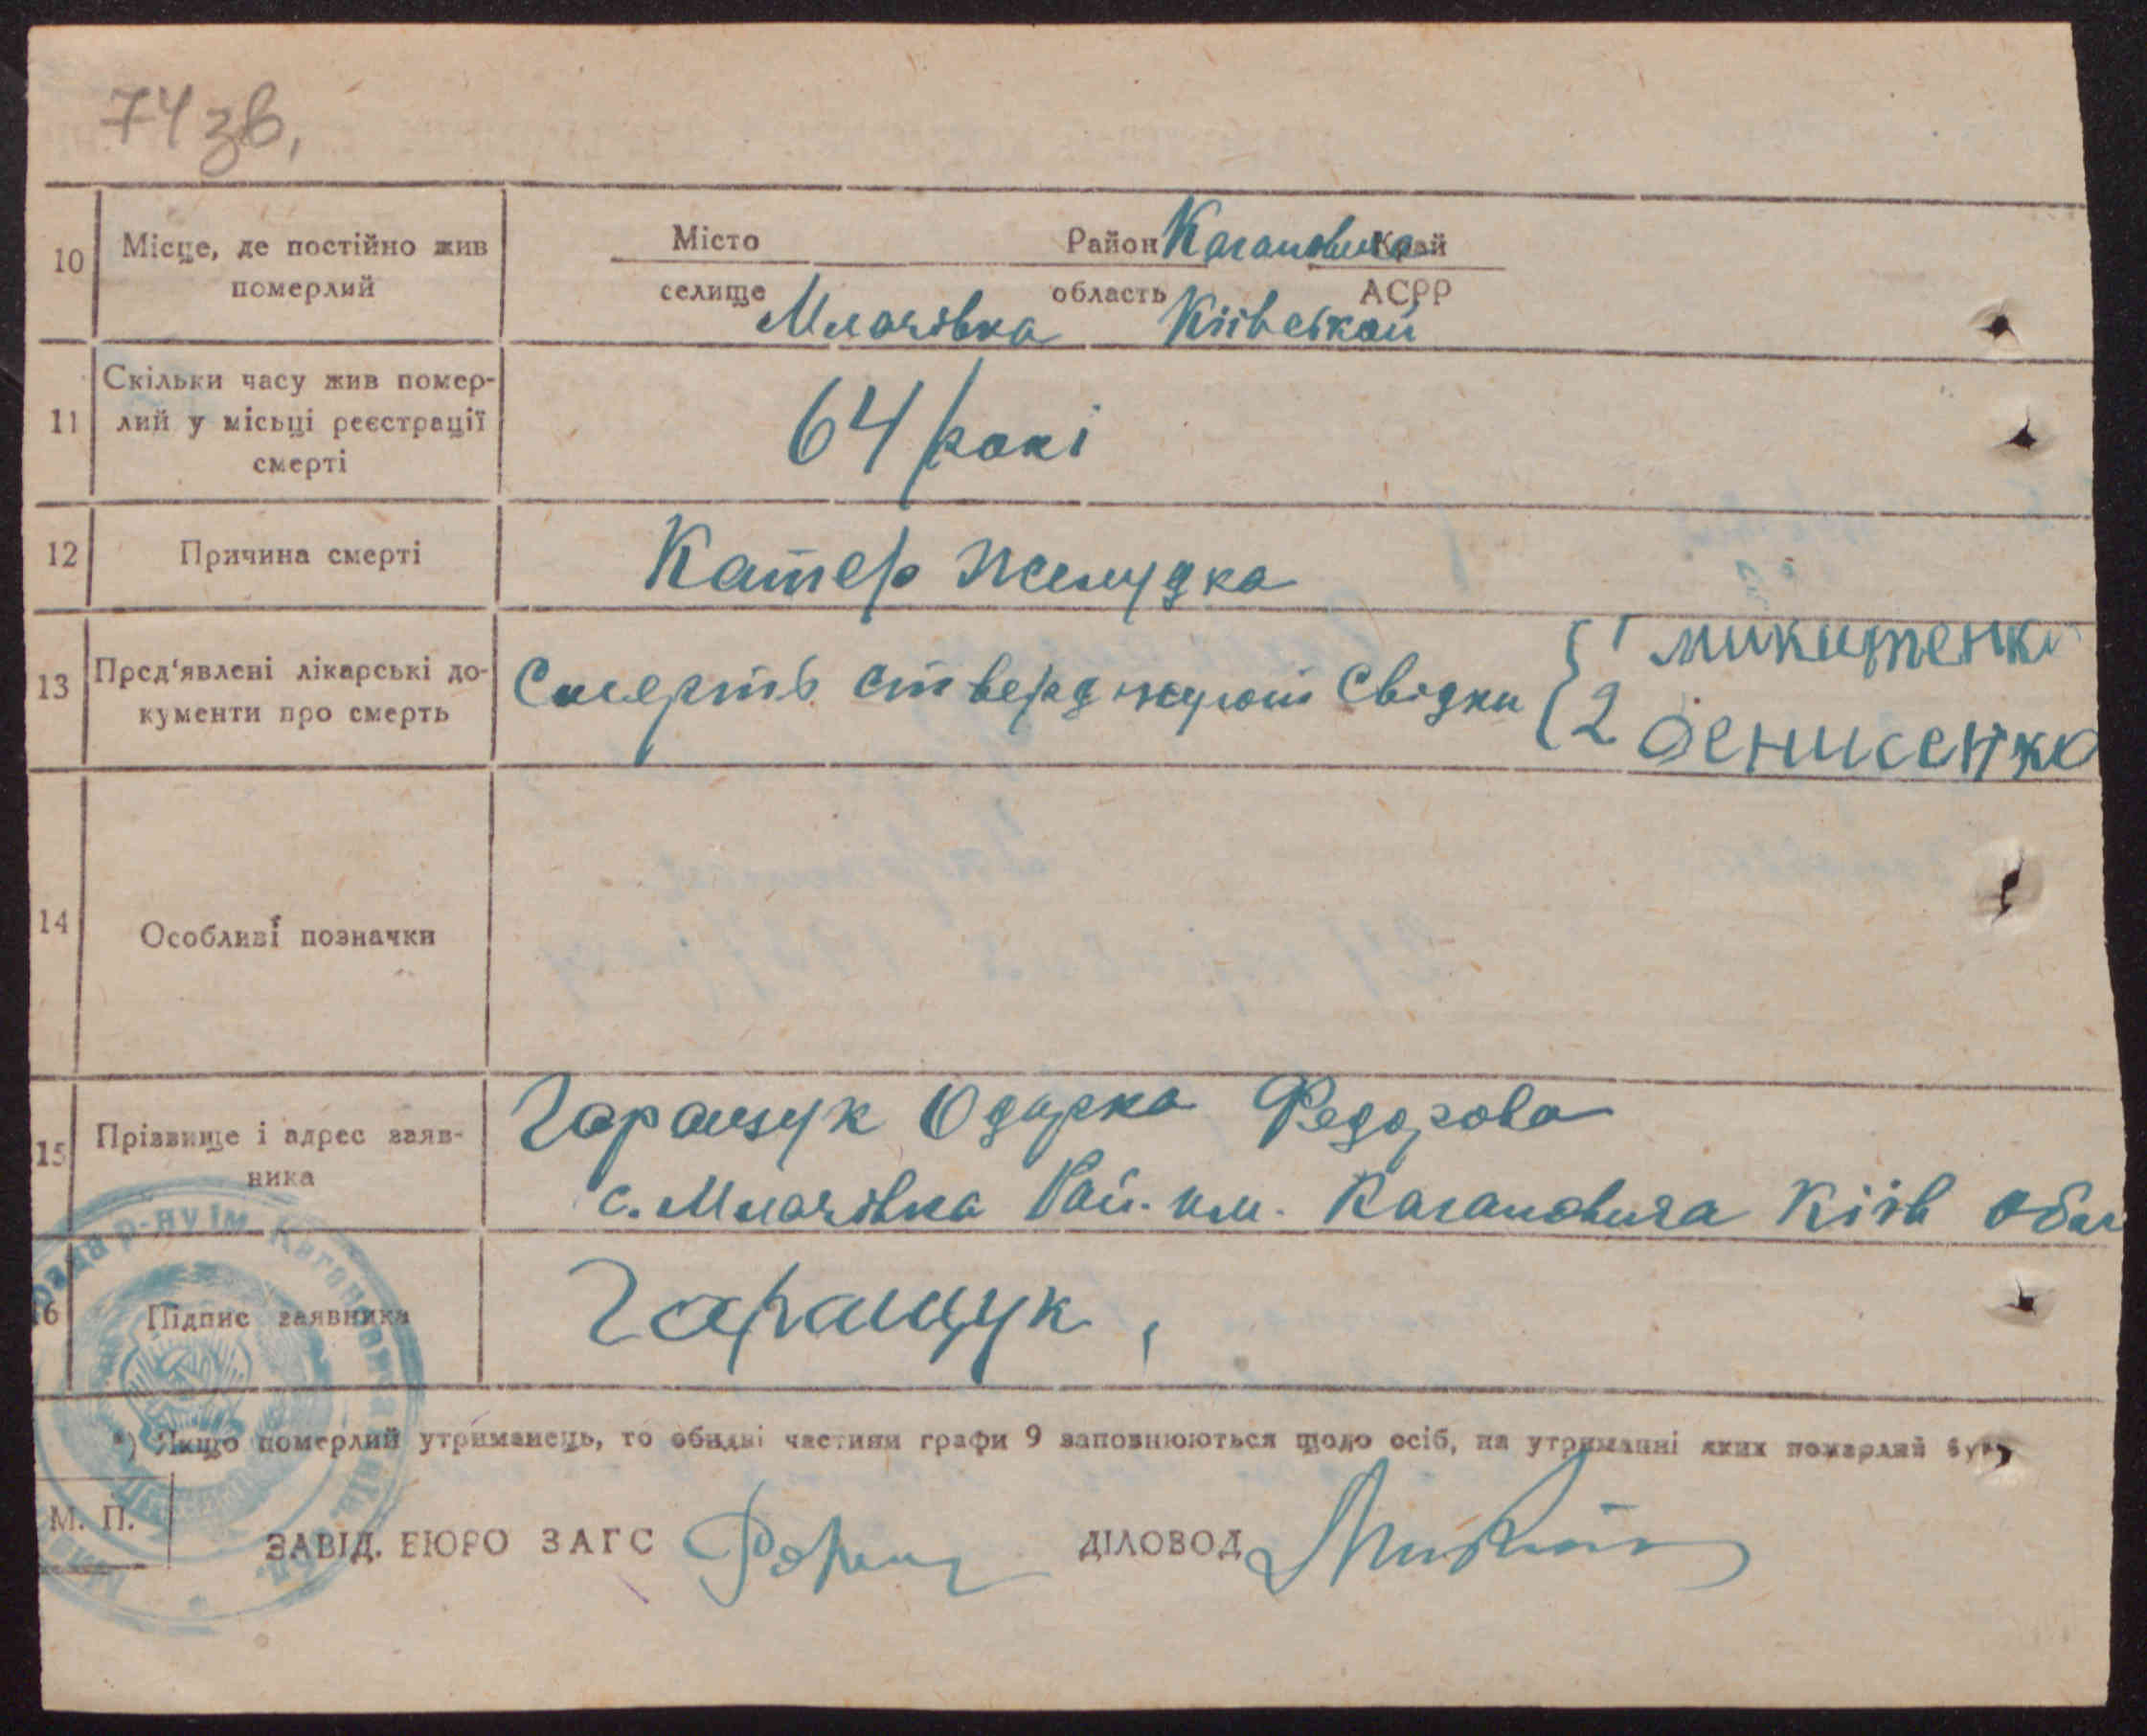 74 зв,
10 Місце, де постійно жив померлий
Місто Район Кагановича Край
селище Млачівка область Київськой АСРР
11 Скільки часу жив помер-
лий у місьці реєстрації
смерті
64 / рокі
12 Причина смерті Катер желудка
13 Пред'явлені лікарські до-
кументи про смерть
Смерть стверджують Свідки { 1 микитенко
2 денисенко
14 Особливі позначки
15 Прізвище і адрес заяв-
ника
Гаращук Одарка Федорова
с. Млачівка Рай. им. Кагановича Киів обл
16 Підпис заявника Гаращук,
*) Якщо померлий утриманець, то обидві частини графи 9 заповнюються щодо осіб, на утриманні яких померлий був
М. П.
ЗАВІД. БЮРО ЗАГС ДІЛОВОД